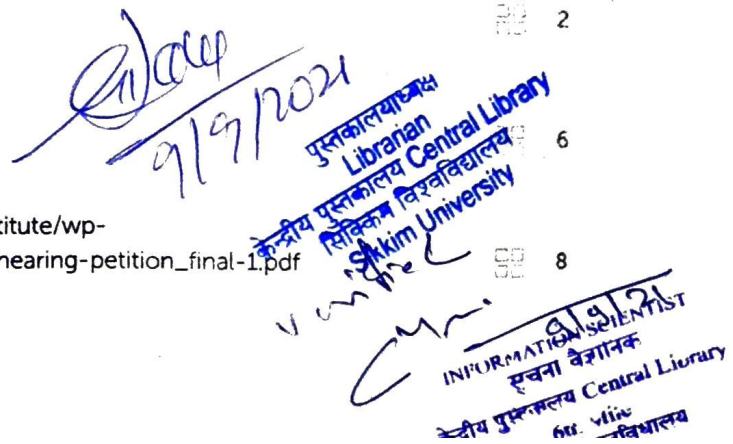 2
9/9/2021
पुस्तकालयाध्यक्ष
Librarian
केन्द्रीय पुस्तकालय Central Library
सिक्किम विश्वविद्यालय
Sikkim University
6
titute/wp-
hearing-petition_final-1.pdf
8
9/9/21
INFORMATION SCIENTIST
सूचना वैज्ञानिक
केन्द्रीय पुस्तकालय Central Library